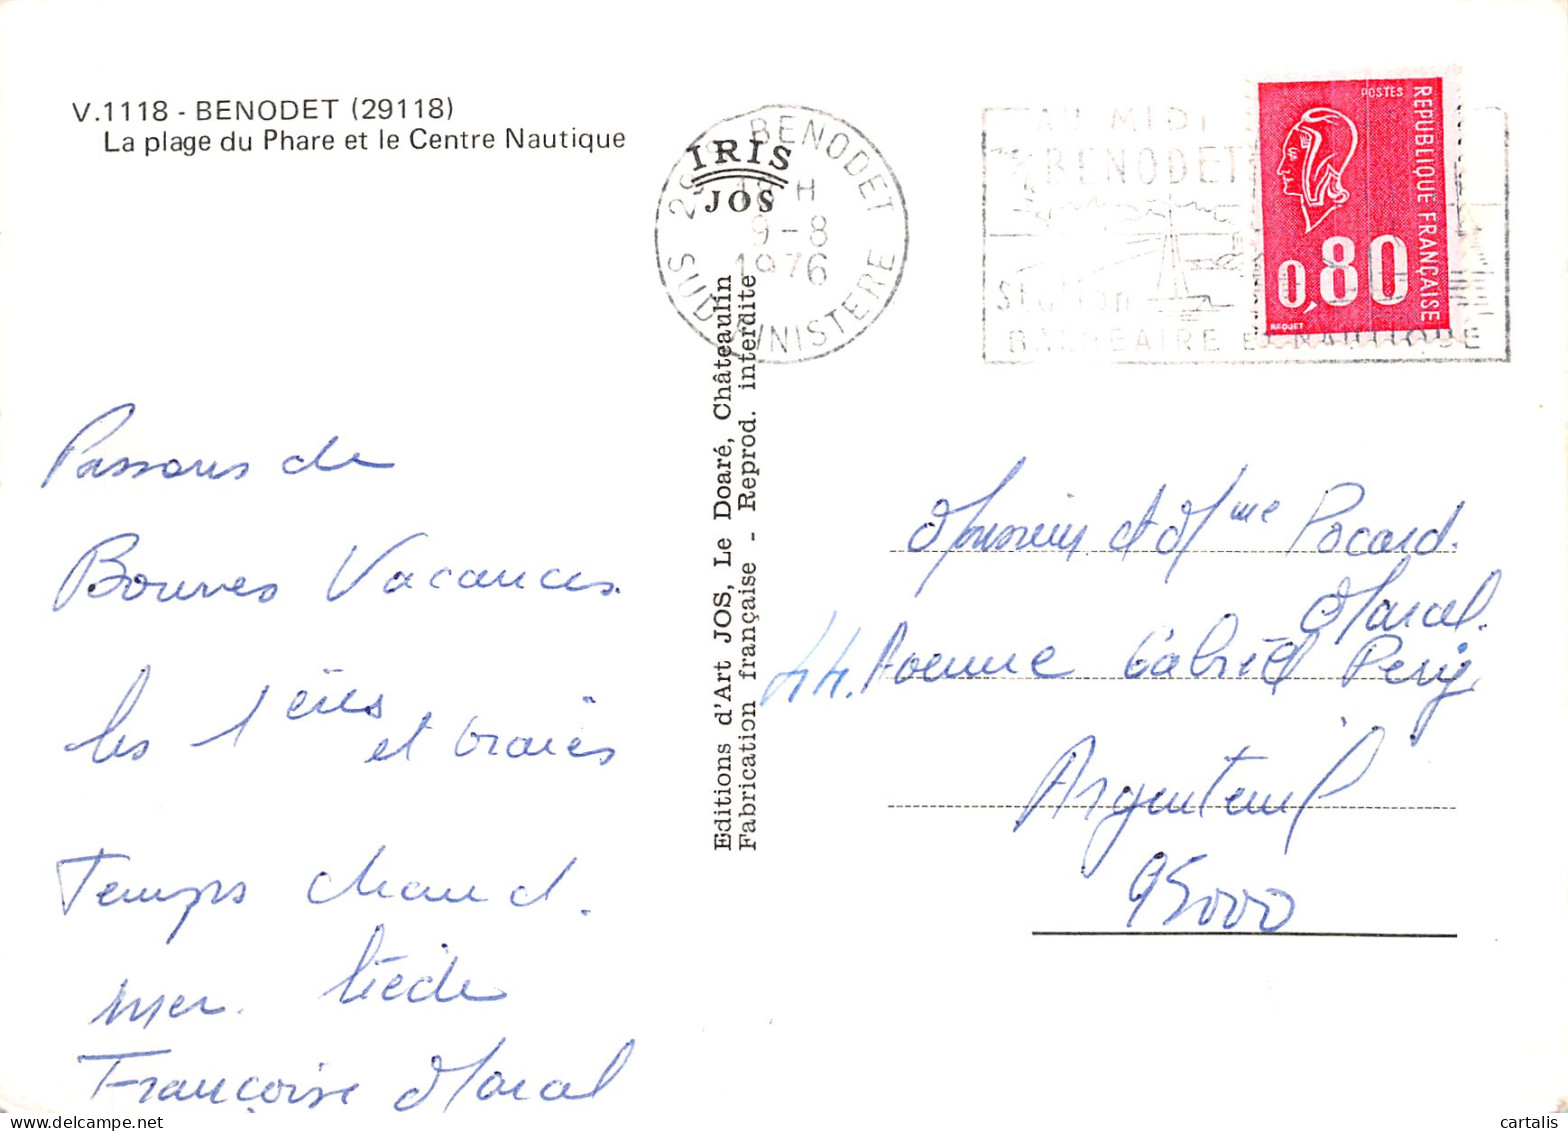 V.1118 - BENODET (29118)
La plage du Phare et le Centre Nautique
IRIS
JOS
BENODET
18 H
9-8
1976
SUD FINISTERE
AU MIDI
BENODET
Station
BALNEAIRE et NAUTIQUE
POSTES
REPUBLIQUE FRANÇAISE
0,80
BEQUET
Editions d'Art JOS, Le Doaré, Châteaulin
Fabrication française - Reprod. interdite
Passons de
Bonnes Vacances.
les 1ères et vraies
Temps chaud.
mer. tiède
Françoise Marcel
Monsieur et Mme Pocard.
Marcel.
44. Avenue Gabriel Pery
Argenteuil
95000
cartalis